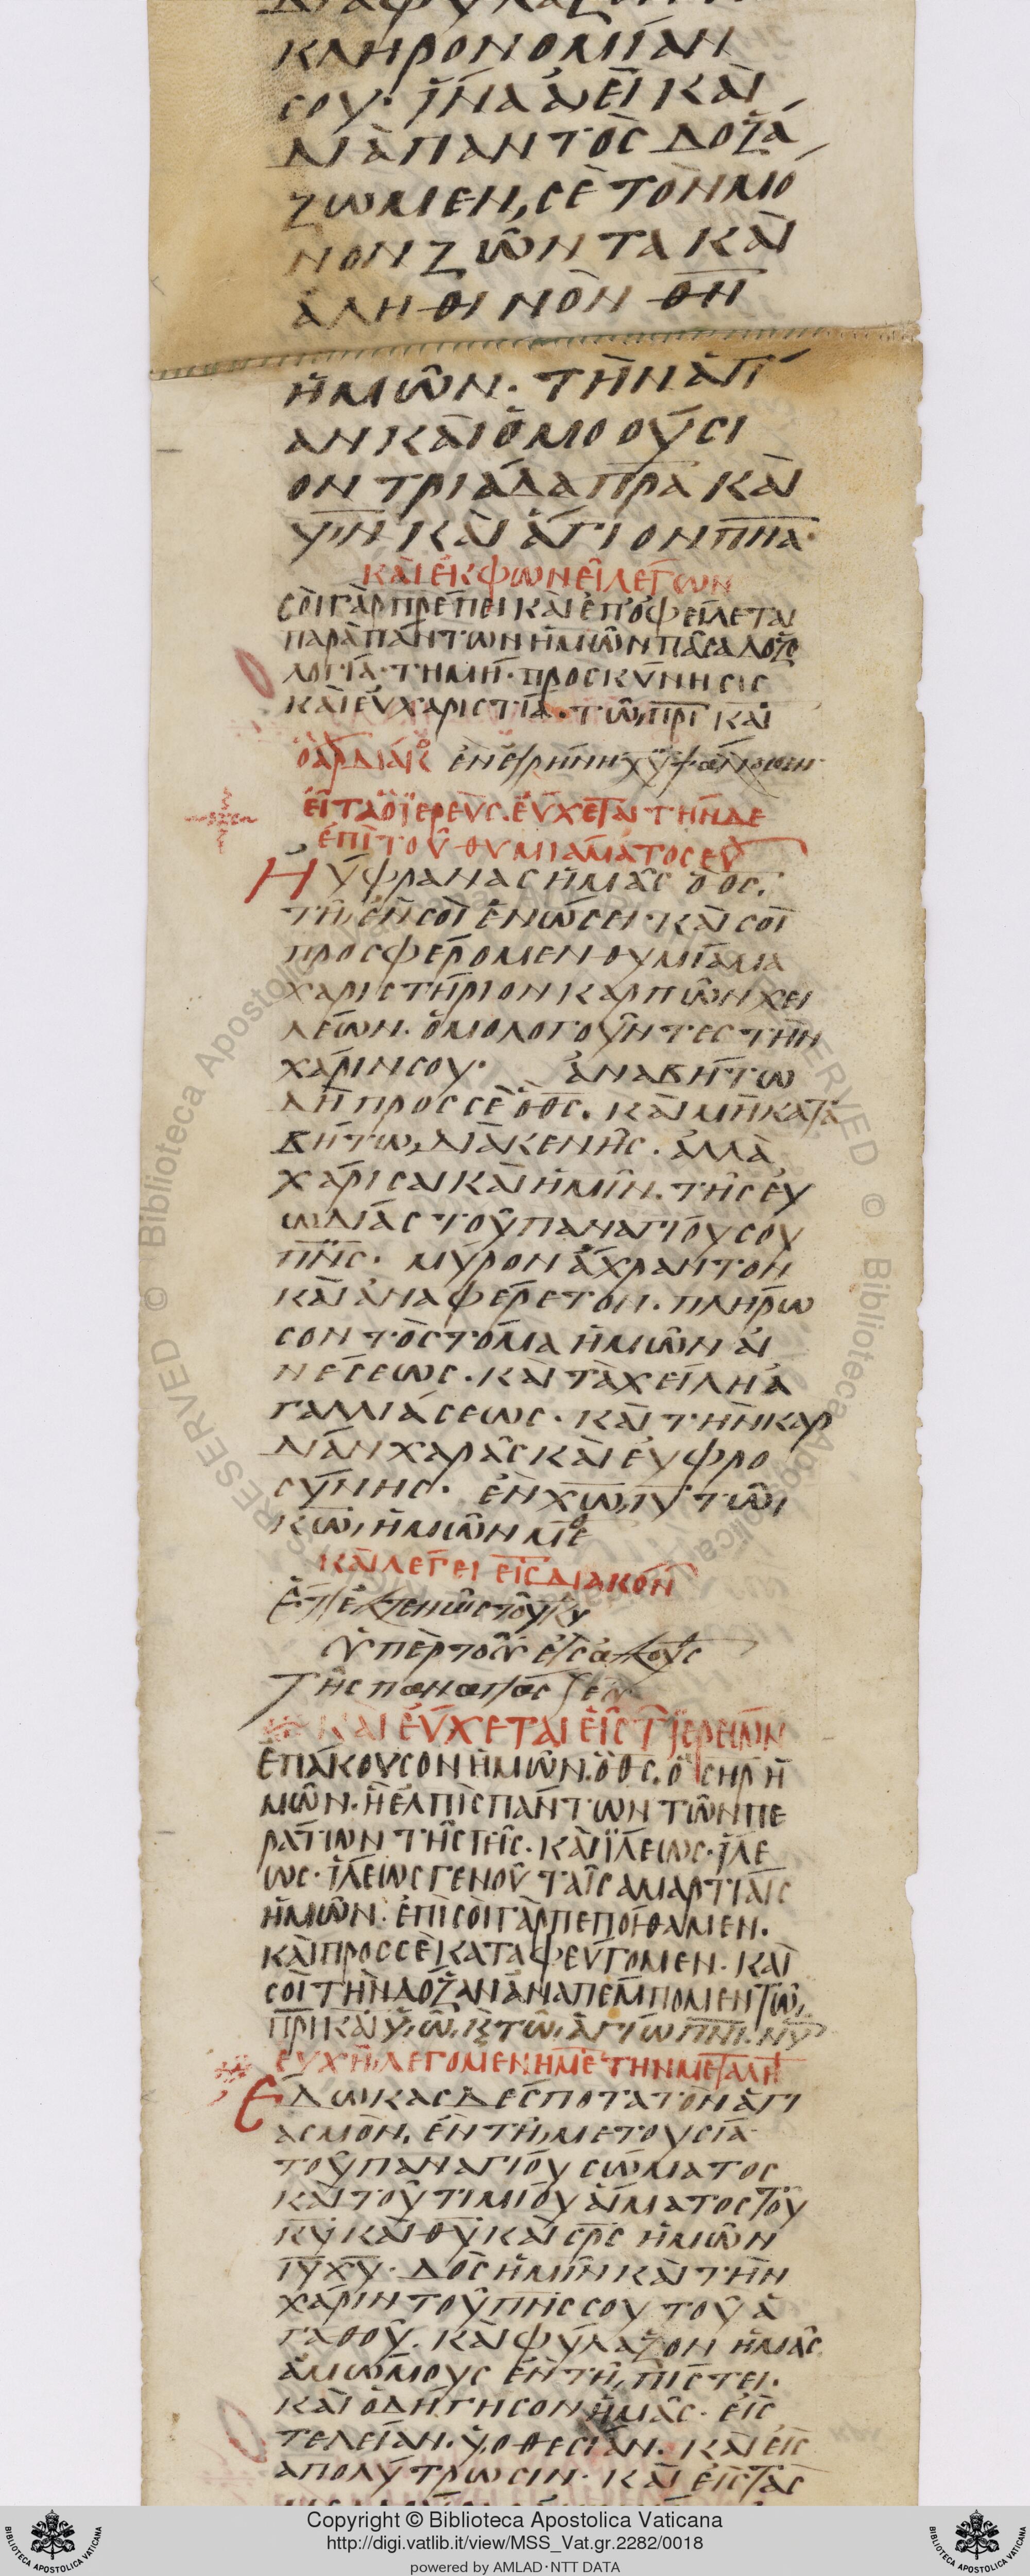 ΚΛΗΡΟΝΟΜΊΑΝ
ΣΟΥ· ἽΝΑ ἈΕῚ ΚΑῚ
ΔΙᾺΠΑΝΤῸΣ ΔΟΞΆ
ΖΩΜΕΝ, ΣῈ ΤῸΝ ΜΌ
ΝΟΝ ΖῶΝΤΑ ΚΑῚ
ἈΛΗΘΙΝῸΝ Θ̅Ν̅
ἩΜῶΝ. ΤῊΝ ἉΓΊ
ΑΝ ΚΑῚ ὉΜΟΟΎΣΙ
ΟΝ ΤΡΙΆΔΑ Π̅Ρ̅Α̅ ΚΑῚ
Υ̅Ν̅ ΚΑῚ ἍΓΙΟΝ Π̅Ν̅Α̅·
ΚΑῚ ἘΚΦΩΝΕῖ ΛΈΓΩΝ
ΣΟῚ ΓᾺΡ ΠΡΈΠΕΙ ΚΑῚ ἘΠΟΦΕΊΛΕΤΑΙ
ΠΑΡᾺ ΠΆΝΤΩΝ ἩΜῶΝ ΠᾶΣΑ ΔΟΞΟ
ΛΟΓΊΑ· ΤΗΜΉ· ΠΡΟΣΚΎΝΗΣΙΣ
ΚΑῚ ΕΥ̓ΧΑΡΙΣΤΊΑ· Τῶ, Π̅Ρ̅Ι̅ ΚΑῚ
Ὁ ἈΡΔΙΆΚ
ἐν εἰρήνη Χ̅Υ̅ ψάλλωμεν·
ΕἾΤΑ Ὁ ἹΕΡΕῪΣ ΕὔΧΕΤΑΙ ΤΗΝΔΕ
ἘΠῚ ΤΟῦ ΘΥΜΙΆΜΑΤΟΣ ΕΥ̓
ΗΎΦΡΑΝΑΣ ἩΜᾶΣ Ὁ Θ̅Σ̅.
Τῆ ἘΝ ΣΟῚ ἙΝΏΣΕΙ· ΚΑῚ ΣΟῚ
ΠΡΟΣΦΈΡΟΜΕΝ ΘΥΜΊΑΜΑ
ΧΑΡΙΣΤΉΡΙΟΝ ΚΑΡΠῶΝ ΧΕΙ
ΛΈΩΝ. ὉΜΟΛΟΓΟῦΝΤΕΣ ΤῊΝ
ΧΆΡΙΝ ΣΟΥ· ἈΝΑΒΉΤΩ
ΔῊ ΠΡΟΣ ΣῈ Ὁ Θ̅Σ̅. ΚΑῚ ΜῊ ΚΑΤΑ
ΒΉΤΩ, ΔΙᾺ ΚΕΝῆΣ. ἈΛΛᾺ
ΧΆΡΙΣΑΙ ΚΑῚ ἩΜῖΝ. ΤῆΣ ΕΥ̓
ΩΔΊΑΣ ΤΟῦ ΠΑΝΑΓΊΟΥ ΣΟΥ
Π̅Ν̅Σ̅· ΜΎΡΟΝ ἌΧΡΑΝΤΟΝ
ΚΑῚ ἈΝΑΦΈΡΕΤΟΝ. ΠΛΉΡΩ
ΣΟΝ ΤῸ ΣΤΌΜΑ ἩΜῶΝ ΑἸ
ΝΈΣΕΩΣ. ΚΑῚ ΤᾺ ΧΕΊΛΗ Ἀ
ΓΑΛΛΙΆΣΕΩΣ. ΚΑῚ ΤῊΝ ΚΑΡ
ΔΊΑΝ ΧΑΡᾶΣ ΚΑῚ ΕΥ̓ΦΡΟ
ΣΎΝΗΣ· ἘΝ Χ̅Ω̅, Ι̅Υ̅ Τῶ
Κ̅Ω̅, ἩΜῶΝ ΜΕ
ΚΑῚ ΛΈΓΕΙ ΕἸΣ ΔΙΆΚΟΝ
Ἔτι ἐκτενῶς τοῦ Κ̅Υ̅
ὑπὲρ τοῦ εἰσακοῦς
Τῆς παναγίας
ΚΑῚ ΕὔΧΕΤΑΙ ΕἿΣ Τ ἹΕΡΈΩΝ
ἘΠΆΚΟΥΣΟΝ ἩΜῶΝ. Ὁ Θ̅Σ̅. Ὁ Σ̅Η̅Ρ̅ Ἡ
ΜῶΝ. Ἡ ἘΛΠῚΣ ΠΆΝΤΩΝ ΤῶΝ ΠΕ
ΡΆΤΩΝ ΤῆΣ ΓῆΣ. ΚΑῚ ἽΛΕΩΣ. ἽΛΕ
ΩΣ· ἽΛΕΩΣ ΓΕΝΟῦ ΤΑῖΣ ἉΜΑΡΤΊΑΙΣ
ἩΜῶΝ. ἘΠῚ ΣΟῚ ΓᾺΡ ΠΕΠΟΊΘΑΜΕΝ.
ΚΑῚ ΠΡΟΣ ΣῈ ΚΑΤΑΦΕΎΓΟΜΕΝ. ΚΑῚ
ΣΟῚ ΤῊΝ ΔΌΞΑΝ ἈΝΑΠΈΜΠΟΜΕΝ Τῶ,
Π̅Ρ̅Ι̅ ΚΑῚ Υ̅Ω̅, Κ Τῶ, ἉΓΊΩ Π̅Ν̅Ι̅. ΝΥ
ΕΥΧῊ ΛΕΓΟΜΕΝΗ ΜΕΤ ΤΗΝ ΜΕΤΑΛΗ
ἜΔΩΚΑΣ ΔΈΣΠΟΤΑ ΤῸΝ ἉΓΙ
ΑΣΜΌΝ. ἘΝ Τῆ, ΜΕΤΟΥΣΊΑ
ΤΟῦ ΠΑΝΑΓΊΟΥ ΣΏΜΑΤΟΣ
ΚΑῚ ΤΟῦ ΤΙΜΊΟΥ ΑἽΜΑΤΟΣ ΤΟῦ
Κ̅Υ̅ ΚΑῚ Θ̅Υ̅ ΚΑῚ Σ̅Ρ̅Σ̅ ἩΜῶΝ
Ι̅Υ̅ Χ̅Υ̅· ΔῸΣ ἩΜῖΝ ΚΑῚ ΤῊΝ
ΧΆΡΙΝ ΤΟῦ Π̅Ν̅Σ̅ ΣΟΥ ΤΟῦ Ἀ
ΓΑΘΟῦ. ΚΑῚ ΦΎΛΑΞΟΝ ἩΜᾶΣ
ἈΜΏΜΟΥΣ ἘΝ Τῆ, ΠΊΣΤΕΙ.
ΚΑῚ ὉΔΉΓΗΣΟΝ ἩΜᾶΣ. ΕἸΣ
ΤΕΛΕΊΑΝ. ΥἹΟΘΕΣΊΑΝ. ΚΑῚ ΕἸΣ
ἈΠΟΛΎΤΡΩΣΙΝ· ΚΑῚ ΕἸΣ ΤᾺΣ
Copyright © Biblioteca Apostolica Vaticana
http://digi.vatlib.it/view/MSS_Vat.gr.2282/0018
powered by AMLAD·NTT DATA